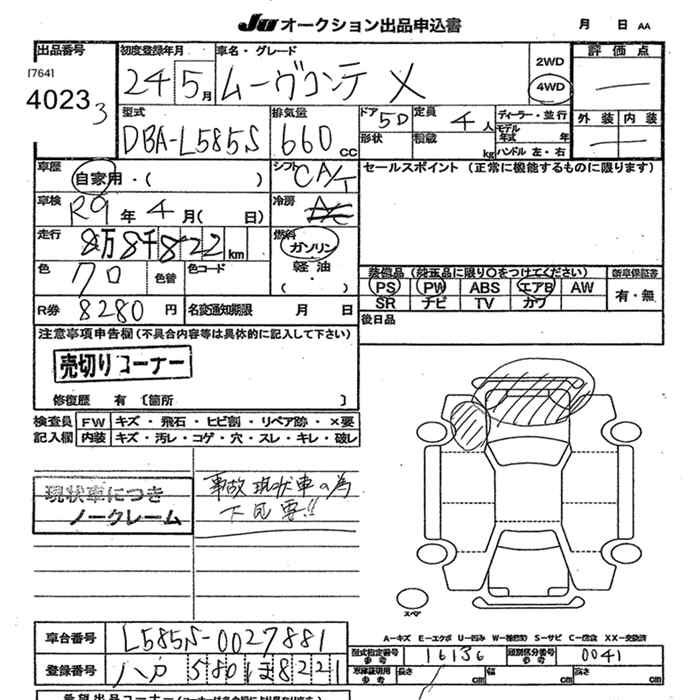 JU オークション出品申込書
月 日 AA
出品番号 初度登録年月 車名・グレード 2WD 評価点
[764]
40233
24 5月 ムーヴコンテ X 4WD ―
型式 排気量 ドア 5D 定員 4人 ディーラー・並行 外装 内装
DBA-L585S 660cc 形状 積載 kg モデル年式 年 ハンドル 左・右
車歴 自家用・( ) シフト CA/T セールスポイント (正常に機能するものに限ります)
車検 R9年4月( 日) 冷房 A/C
走行 8万8千822km 燃料 ガソリン
軽油
色 クロ 色替 色コード ・ 装備品(純正品に限り○をつけてください) 新車保証書
PS PW ABS エアB AW 有・無
SR ナビ TV カワ
R券 8280円 名変通知期限 月 日 後日品
注意事項申告欄(不具合内容等は具体的に記入して下さい)
売切りコーナー
修復歴 有 [箇所 ]
検査員 FW キズ・飛石・ヒビ割・リペア跡・×要
記入欄 内装 キズ・汚レ・コゲ・穴・スレ・キレ・破レ
現状車につき
ノークレーム
事故現状車の為
下見要!!
スペア
A-キズ E-エクボ U-凹み W-補修跡 S-サビ C-腐食 XX-交換済
車台番号 L585S-0027881 型式指定番号 参考 16136 類別区分番号 参考 0041
登録番号 八戸 580 ほ 8221 車庫証明用 参考 長さ cm 幅 cm 高さ cm
希望出品コーナー